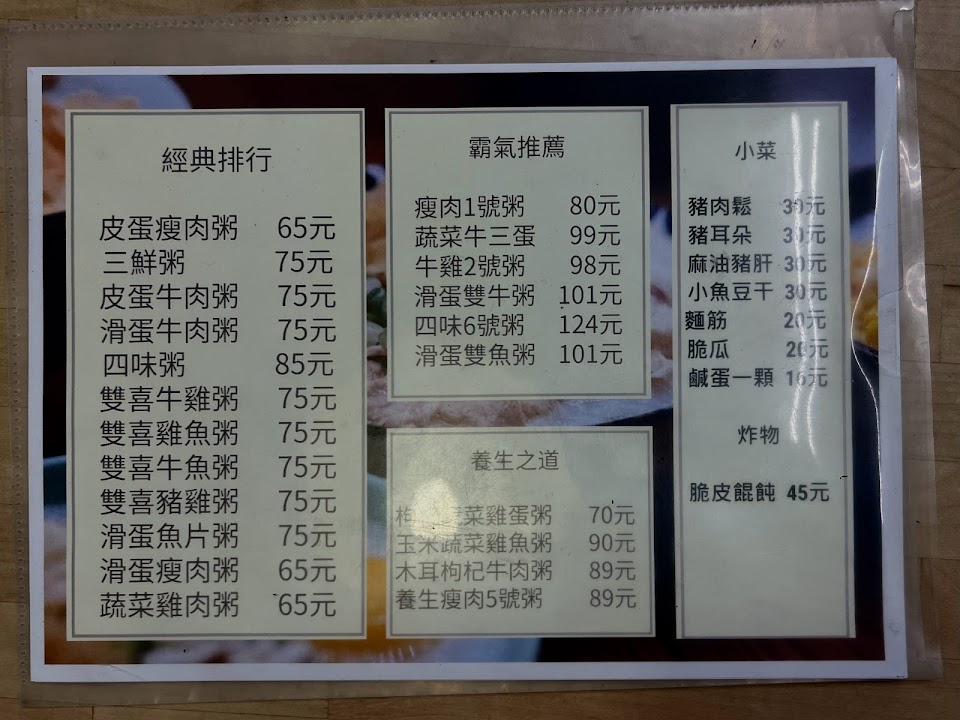 經典排行
皮蛋瘦肉粥 65元
三鮮粥 75元
皮蛋牛肉粥 75元
滑蛋牛肉粥 75元
四味粥 85元
雙喜牛雞粥 75元
雙喜雞魚粥 75元
雙喜牛魚粥 75元
雙喜豬雞粥 75元
滑蛋魚片粥 75元
滑蛋瘦肉粥 65元
蔬菜雞肉粥 65元
霸氣推薦
瘦肉1號粥 80元
蔬菜牛三蛋 99元
牛雞2號粥 98元
滑蛋雙牛粥 101元
四味6號粥 124元
滑蛋雙魚粥 101元
養生之道
菜雞蛋粥 70元
玉米蔬菜雞魚粥 90元
木耳枸杞牛肉粥 89元
養生瘦肉5號粥 89元
小菜
豬肉鬆 30元
豬耳朵 30元
麻油豬肝 30元
小魚豆干 30元
麵筋 20元
脆瓜 20元
鹹蛋一顆 16元
炸物
脆皮餛飩 45元